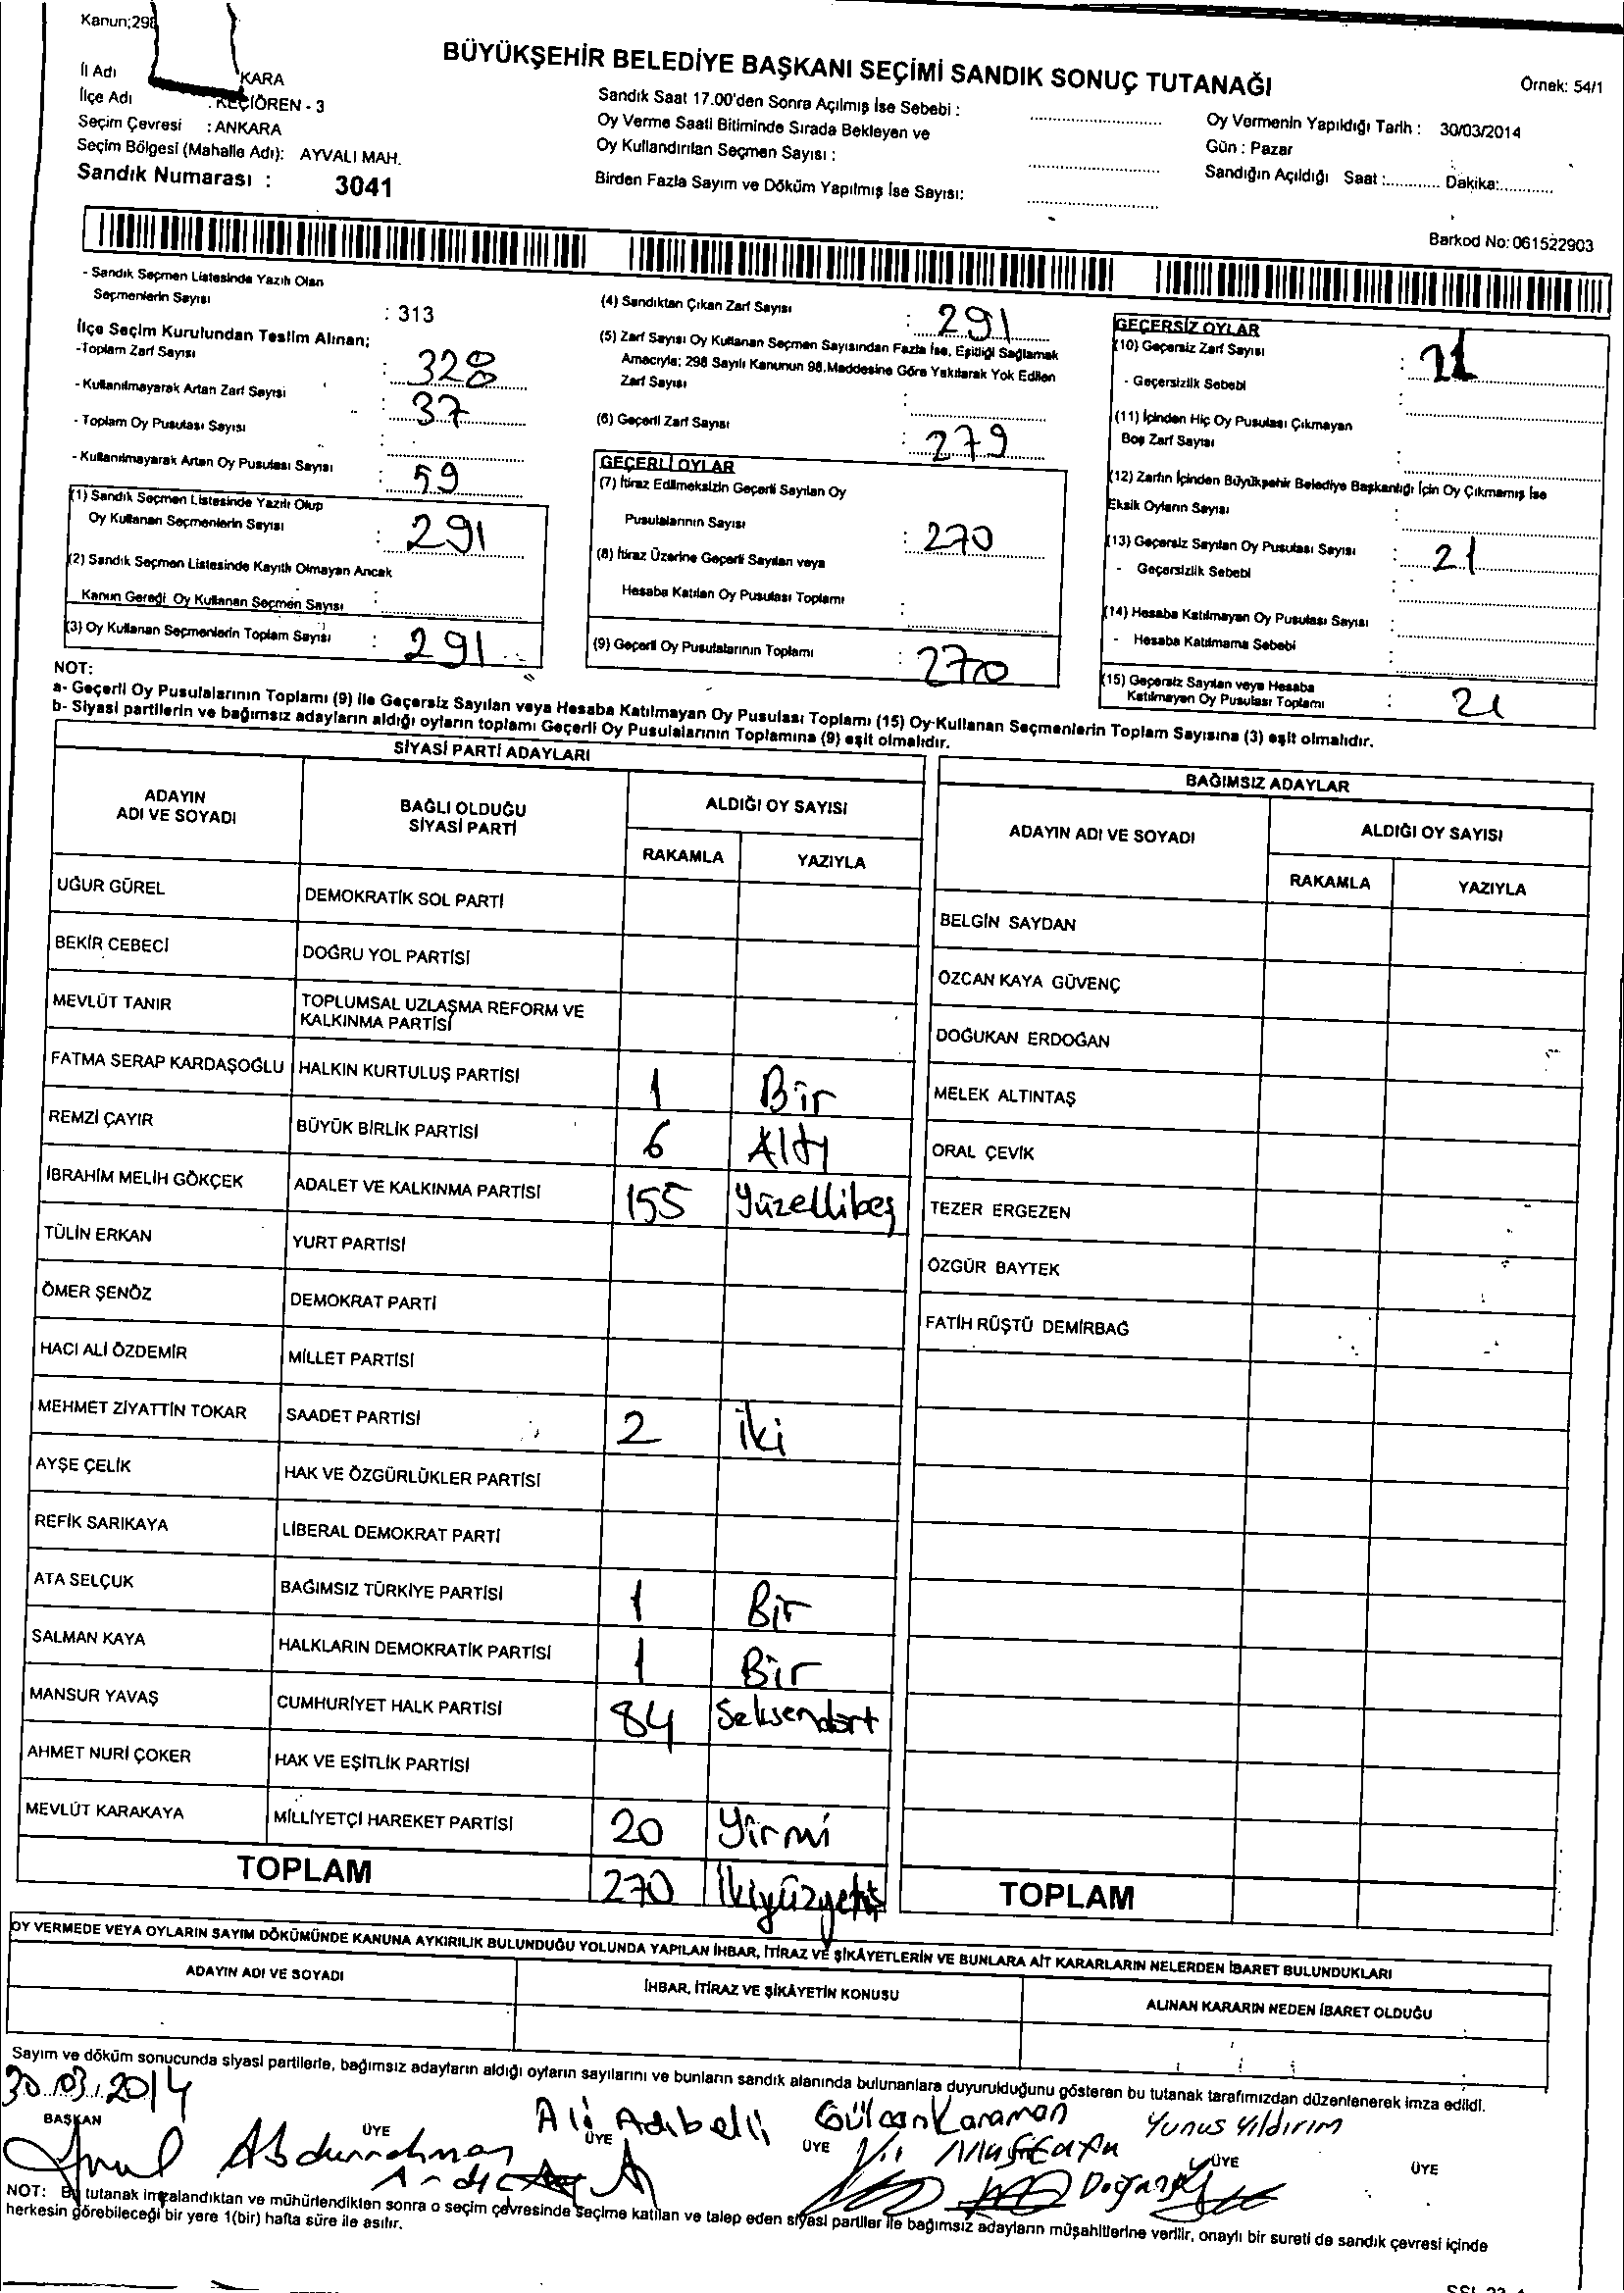 Kanun;298
BÜYÜKŞEHİR BELEDİYE BAŞKANI SEÇİMİ SANDIK SONUÇ TUTANAĞI
Örnek: 54/1
İl Adı KARA
İlçe Adı : KEÇİÖREN - 3
Seçim Çevresi : ANKARA
Seçim Bölgesi (Mahalle Adı): AYVALI MAH.
Sandık Numarası : 3041
Sandık Saat 17.00'den Sonra Açılmış İse Sebebi :
Oy Verme Saati Bitiminde Sırada Bekleyen ve
Oy Kullandırılan Seçmen Sayısı :
Birden Fazla Sayım ve Döküm Yapılmış İse Sayısı:
Oy Vermenin Yapıldığı Tarih : 30/03/2014
Gün : Pazar
Sandığın Açıldığı Saat :........... Dakika:...........
Barkod No: 061522903
- Sandık Seçmen Listesinde Yazılı Olan
Seçmenlerin Sayısı : 313
İlçe Seçim Kurulundan Teslim Alınan;
-Toplam Zarf Sayısı : 328
- Kullanılmayarak Artan Zarf Sayısı : 37
- Toplam Oy Pusulası Sayısı :
- Kullanılmayarak Artan Oy Pusulası Sayısı : 59
(1) Sandık Seçmen Listesinde Yazılı Olup
Oy Kullanan Seçmenlerin Sayısı : 291
(2) Sandık Seçmen Listesinde Kayıtlı Olmayan Ancak
Kanun Gereği Oy Kullanan Seçmen Sayısı :
(3) Oy Kullanan Seçmenlerin Toplam Sayısı : 291
(4) Sandıktan Çıkan Zarf Sayısı : 291
(5) Zarf Sayısı Oy Kullanan Seçmen Sayısından Fazla İse, Eşitliği Sağlamak
Amacıyla; 298 Sayılı Kanunun 98.Maddesine Göre Yakılarak Yok Edilen
Zarf Sayısı :
(6) Geçerli Zarf Sayısı : 279
GEÇERLİ OYLAR
(7) İtiraz Edilmeksizin Geçerli Sayılan Oy
Pusulalarının Sayısı : 270
(8) İtiraz Üzerine Geçerli Sayılan veya
Hesaba Katılan Oy Pusulası Toplamı :
(9) Geçerli Oy Pusulalarının Toplamı : 270
GEÇERSİZ OYLAR
(10) Geçersiz Zarf Sayısı :
- Geçersizlik Sebebi :
(11) İçinden Hiç Oy Pusulası Çıkmayan
Boş Zarf Sayısı :
(12) Zarfın İçinden Büyükşehir Belediye Başkanlığı İçin Oy Çıkmamış İse
Eksik Oyların Sayısı :
(13) Geçersiz Sayılan Oy Pusulası Sayısı : 21
- Geçersizlik Sebebi :
(14) Hesaba Katılmayan Oy Pusulası Sayısı :
- Hesaba Katılmama Sebebi :
(15) Geçersiz Sayılan veya Hesaba
Katılmayan Oy Pusulası Toplamı : 21
NOT:
a- Geçerli Oy Pusulalarının Toplamı (9) ile Geçersiz Sayılan veya Hesaba Katılmayan Oy Pusulası Toplamı (15) Oy Kullanan Seçmenlerin Toplam Sayısına (3) eşit olmalıdır.
b- Siyasi partilerin ve bağımsız adayların aldığı oyların toplamı Geçerli Oy Pusulalarının Toplamına (9) eşit olmalıdır.
SİYASİ PARTİ ADAYLARI
ADAYIN ADI VE SOYADI BAĞLI OLDUĞU SİYASİ PARTİ ALDIĞI OY SAYISI
RAKAMLA YAZIYLA
UĞUR GÜREL DEMOKRATİK SOL PARTİ
BEKİR CEBECİ DOĞRU YOL PARTİSİ
MEVLÜT TANIR TOPLUMSAL UZLAŞMA REFORM VE
KALKINMA PARTİSİ
FATMA SERAP KARDAŞOĞLU HALKIN KURTULUŞ PARTİSİ 1 Bir
REMZİ ÇAYIR BÜYÜK BİRLİK PARTİSİ 6 Altı
İBRAHİM MELİH GÖKÇEK ADALET VE KALKINMA PARTİSİ 155 Yüzellibeş
TÜLİN ERKAN YURT PARTİSİ
ÖMER ŞENÖZ DEMOKRAT PARTİ
HACI ALİ ÖZDEMİR MİLLET PARTİSİ
MEHMET ZİYATTİN TOKAR SAADET PARTİSİ 2 İki
AYŞE ÇELİK HAK VE ÖZGÜRLÜKLER PARTİSİ
REFİK SARIKAYA LİBERAL DEMOKRAT PARTİ
ATA SELÇUK BAĞIMSIZ TÜRKİYE PARTİSİ 1 Bir
SALMAN KAYA HALKLARIN DEMOKRATİK PARTİSİ 1 Bir
MANSUR YAVAŞ CUMHURİYET HALK PARTİSİ 84 Seksendört
AHMET NURİ ÇOKER HAK VE EŞİTLİK PARTİSİ
MEVLÜT KARAKAYA MİLLİYETÇİ HAREKET PARTİSİ 20 Yirmi
TOPLAM 270 İkiyüzyetmiş
BAĞIMSIZ ADAYLAR
ADAYIN ADI VE SOYADI ALDIĞI OY SAYISI
RAKAMLA YAZIYLA
BELGİN SAYDAN
ÖZCAN KAYA GÜVENÇ
DOĞUKAN ERDOĞAN
MELEK ALTINTAŞ
ORAL ÇEVİK
TEZER ERGEZEN
ÖZGÜR BAYTEK
FATİH RÜŞTÜ DEMİRBAĞ
TOPLAM
OY VERMEDE VEYA OYLARIN SAYIM DÖKÜMÜNDE KANUNA AYKIRILIK BULUNDUĞU YOLUNDA YAPILAN İHBAR, İTİRAZ VE ŞİKÂYETLERİN VE BUNLARA AİT KARARLARIN NELERDEN İBARET BULUNDUKLARI
ADAYIN ADI VE SOYADI İHBAR, İTİRAZ VE ŞİKÂYETİN KONUSU ALINAN KARARIN NEDEN İBARET OLDUĞU
Sayım ve döküm sonucunda siyasi partilerle, bağımsız adayların aldığı oyların sayılarını ve bunların sandık alanında bulunanlara duyurulduğunu gösteren bu tutanak tarafımızdan düzenlenerek imza edildi.
30.03.2014
BAŞKAN ÜYE ÜYE ÜYE ÜYE ÜYE
Abdurrahman
Ali Adıbelli Gülcan Karaman Yunus Yıldırım
Mustafa
Doğan
NOT: Bu tutanak imzalandıktan ve mühürlendikten sonra o seçim çevresinde seçime katılan ve talep eden siyasi partiler ile bağımsız adayların müşahitlerine verilir, onaylı bir sureti de sandık çevresi içinde
herkesin görebileceği bir yere 1(bir) hafta süre ile asılır.